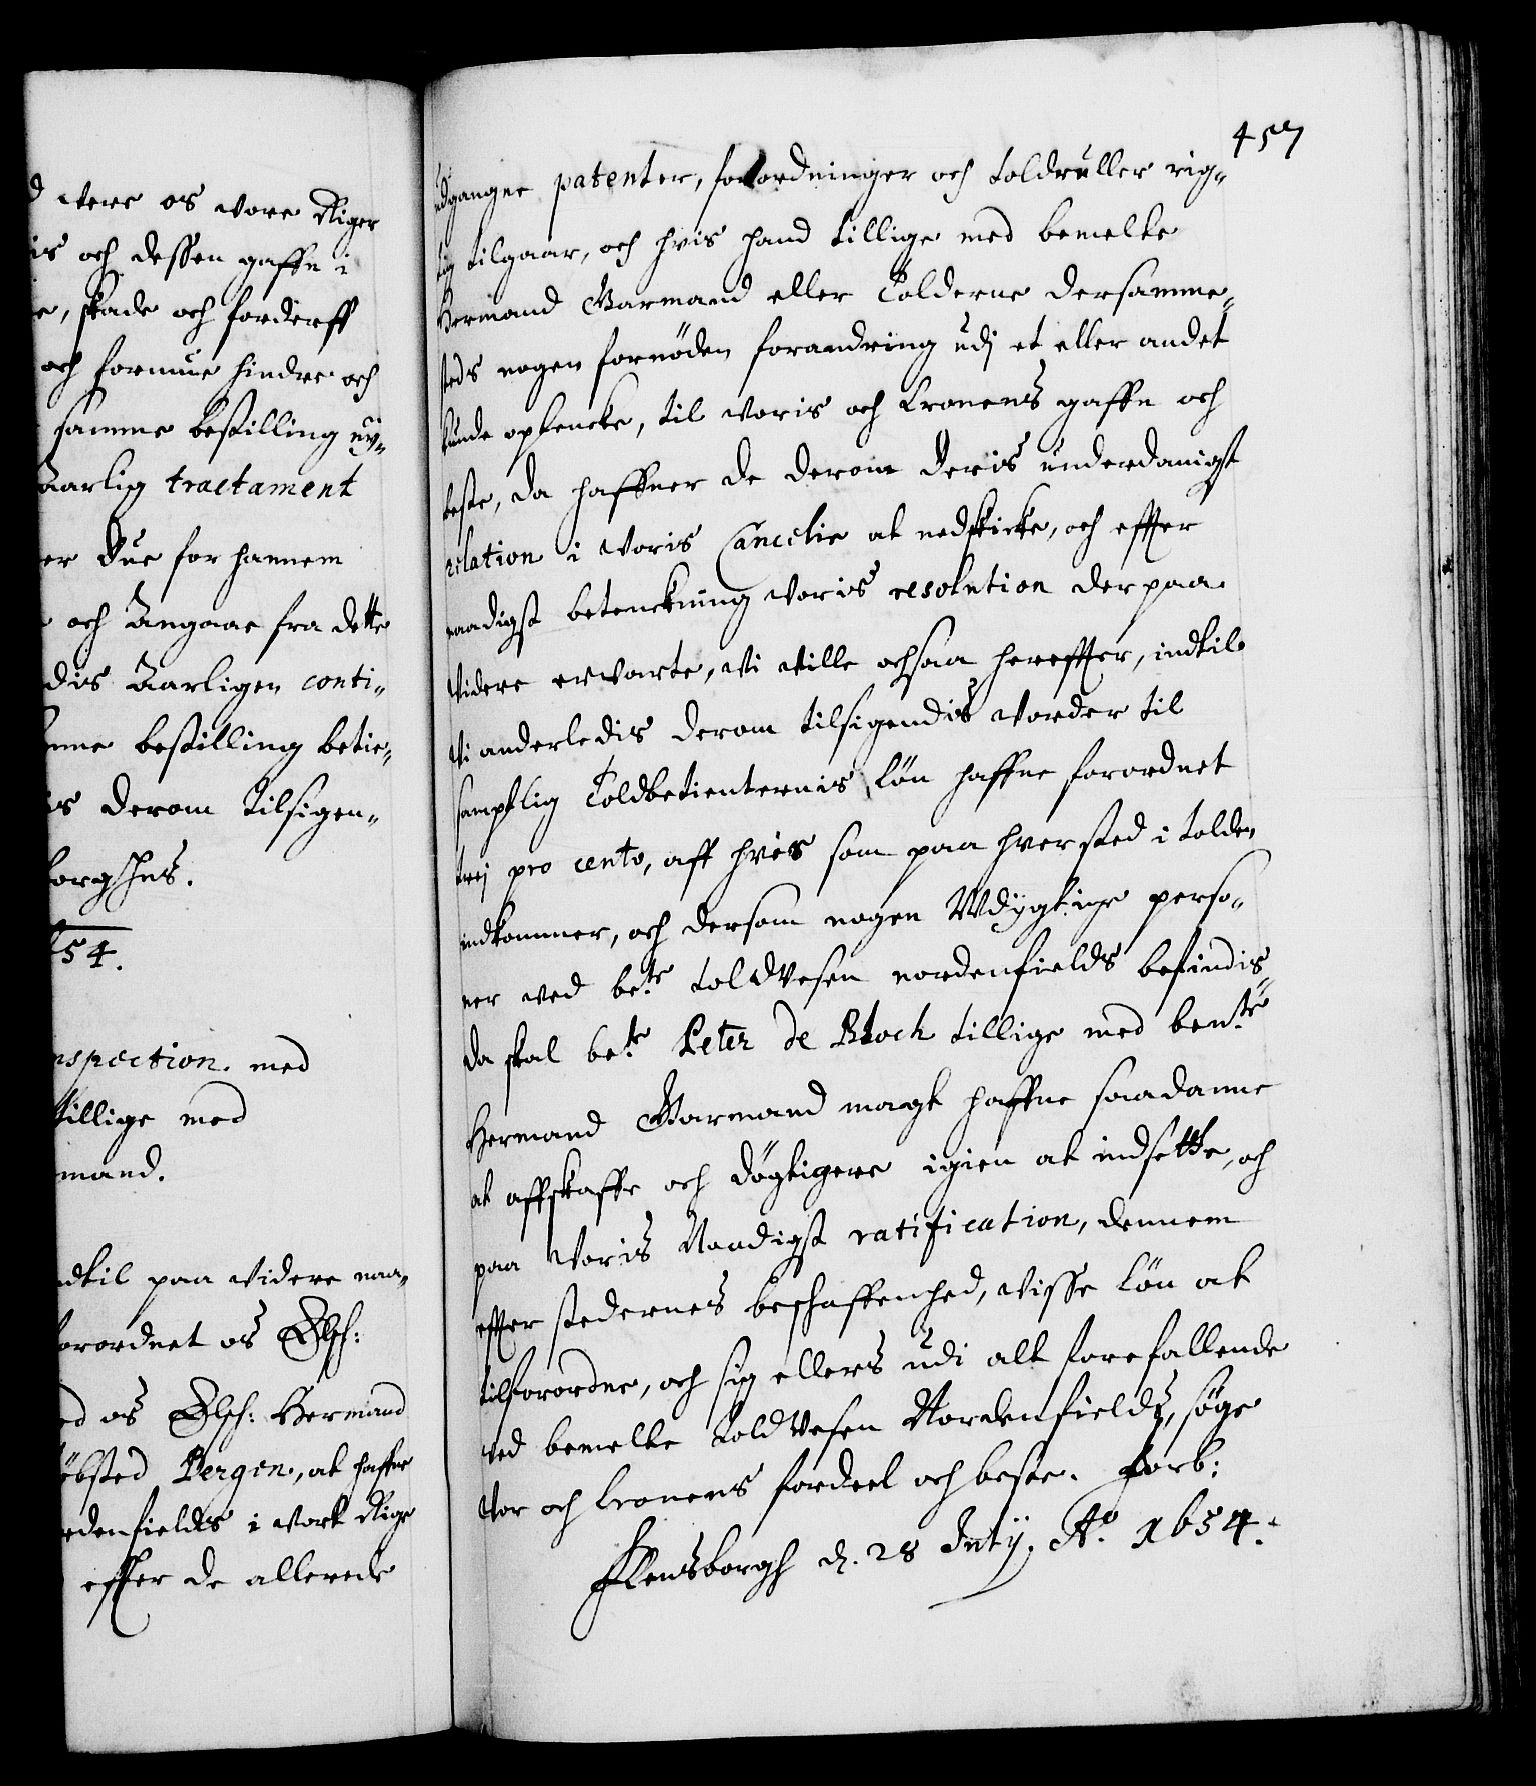 d were os wore Riger
is och dessen gaffn i
e, skade och forderff
och formue hindre och
samme bestilling ny-
Aarlig tractament
er Due for hannem
och Angaar fra dette
dis Aarligen conti-
mme bestilling betie-
is derom tilsigen-
borghus.
54.
nspection med
tillige med
mand.
ndtil paa widere naa-
forordnet os Elsch:
ed os Elsch: Hermand
öbsted Bergen, at haffue
rdenfields i wort Rige
effter de allerede
457
udgangne patenter, forordninger och toldruller rig-
tig tilgaar, och hvis hand tillige med bemelte
Hermand Garmand eller Tolderne dersamme-
steds nogen fornöden forandring udj et eller andet
kunde optencke, til woris och Kronens gaffn och
beste, da haffuer de derom deris underdanigst
relation i woris Cancelie at nedskicke, och effter
naadigst betenckning woris resolution derpaa
widere erwarte, Wi wille ochsaa hereffter, indtil
Wi anderledis derom tilsigendis worder til
samptlig Toldbetienternis lön haffue forordnet
trej pro cento, aff hvis som paa hver sted i tolden
indkommer, och dersom nogen Wdygtige perso-
ner ved bete toldvesen nordenfields befindis,
da skal bete Peter de Bloch tillige med bemte
Hermand Garmand magt haffue saadanne
at affskaffe och döGtigere igien at indsette, och
paa Woris Naadigst ratification, dennem
effter stedernes beschaffenhed, wisse lön at
tilforordne, och sig ellers udi alt forefallende
ved bemelte Toldvesen Nordenfields, söge
Vor och Cronens fordeel och beste. Forb:
Flensborgh d. 28 Julij. Ao. 1654.